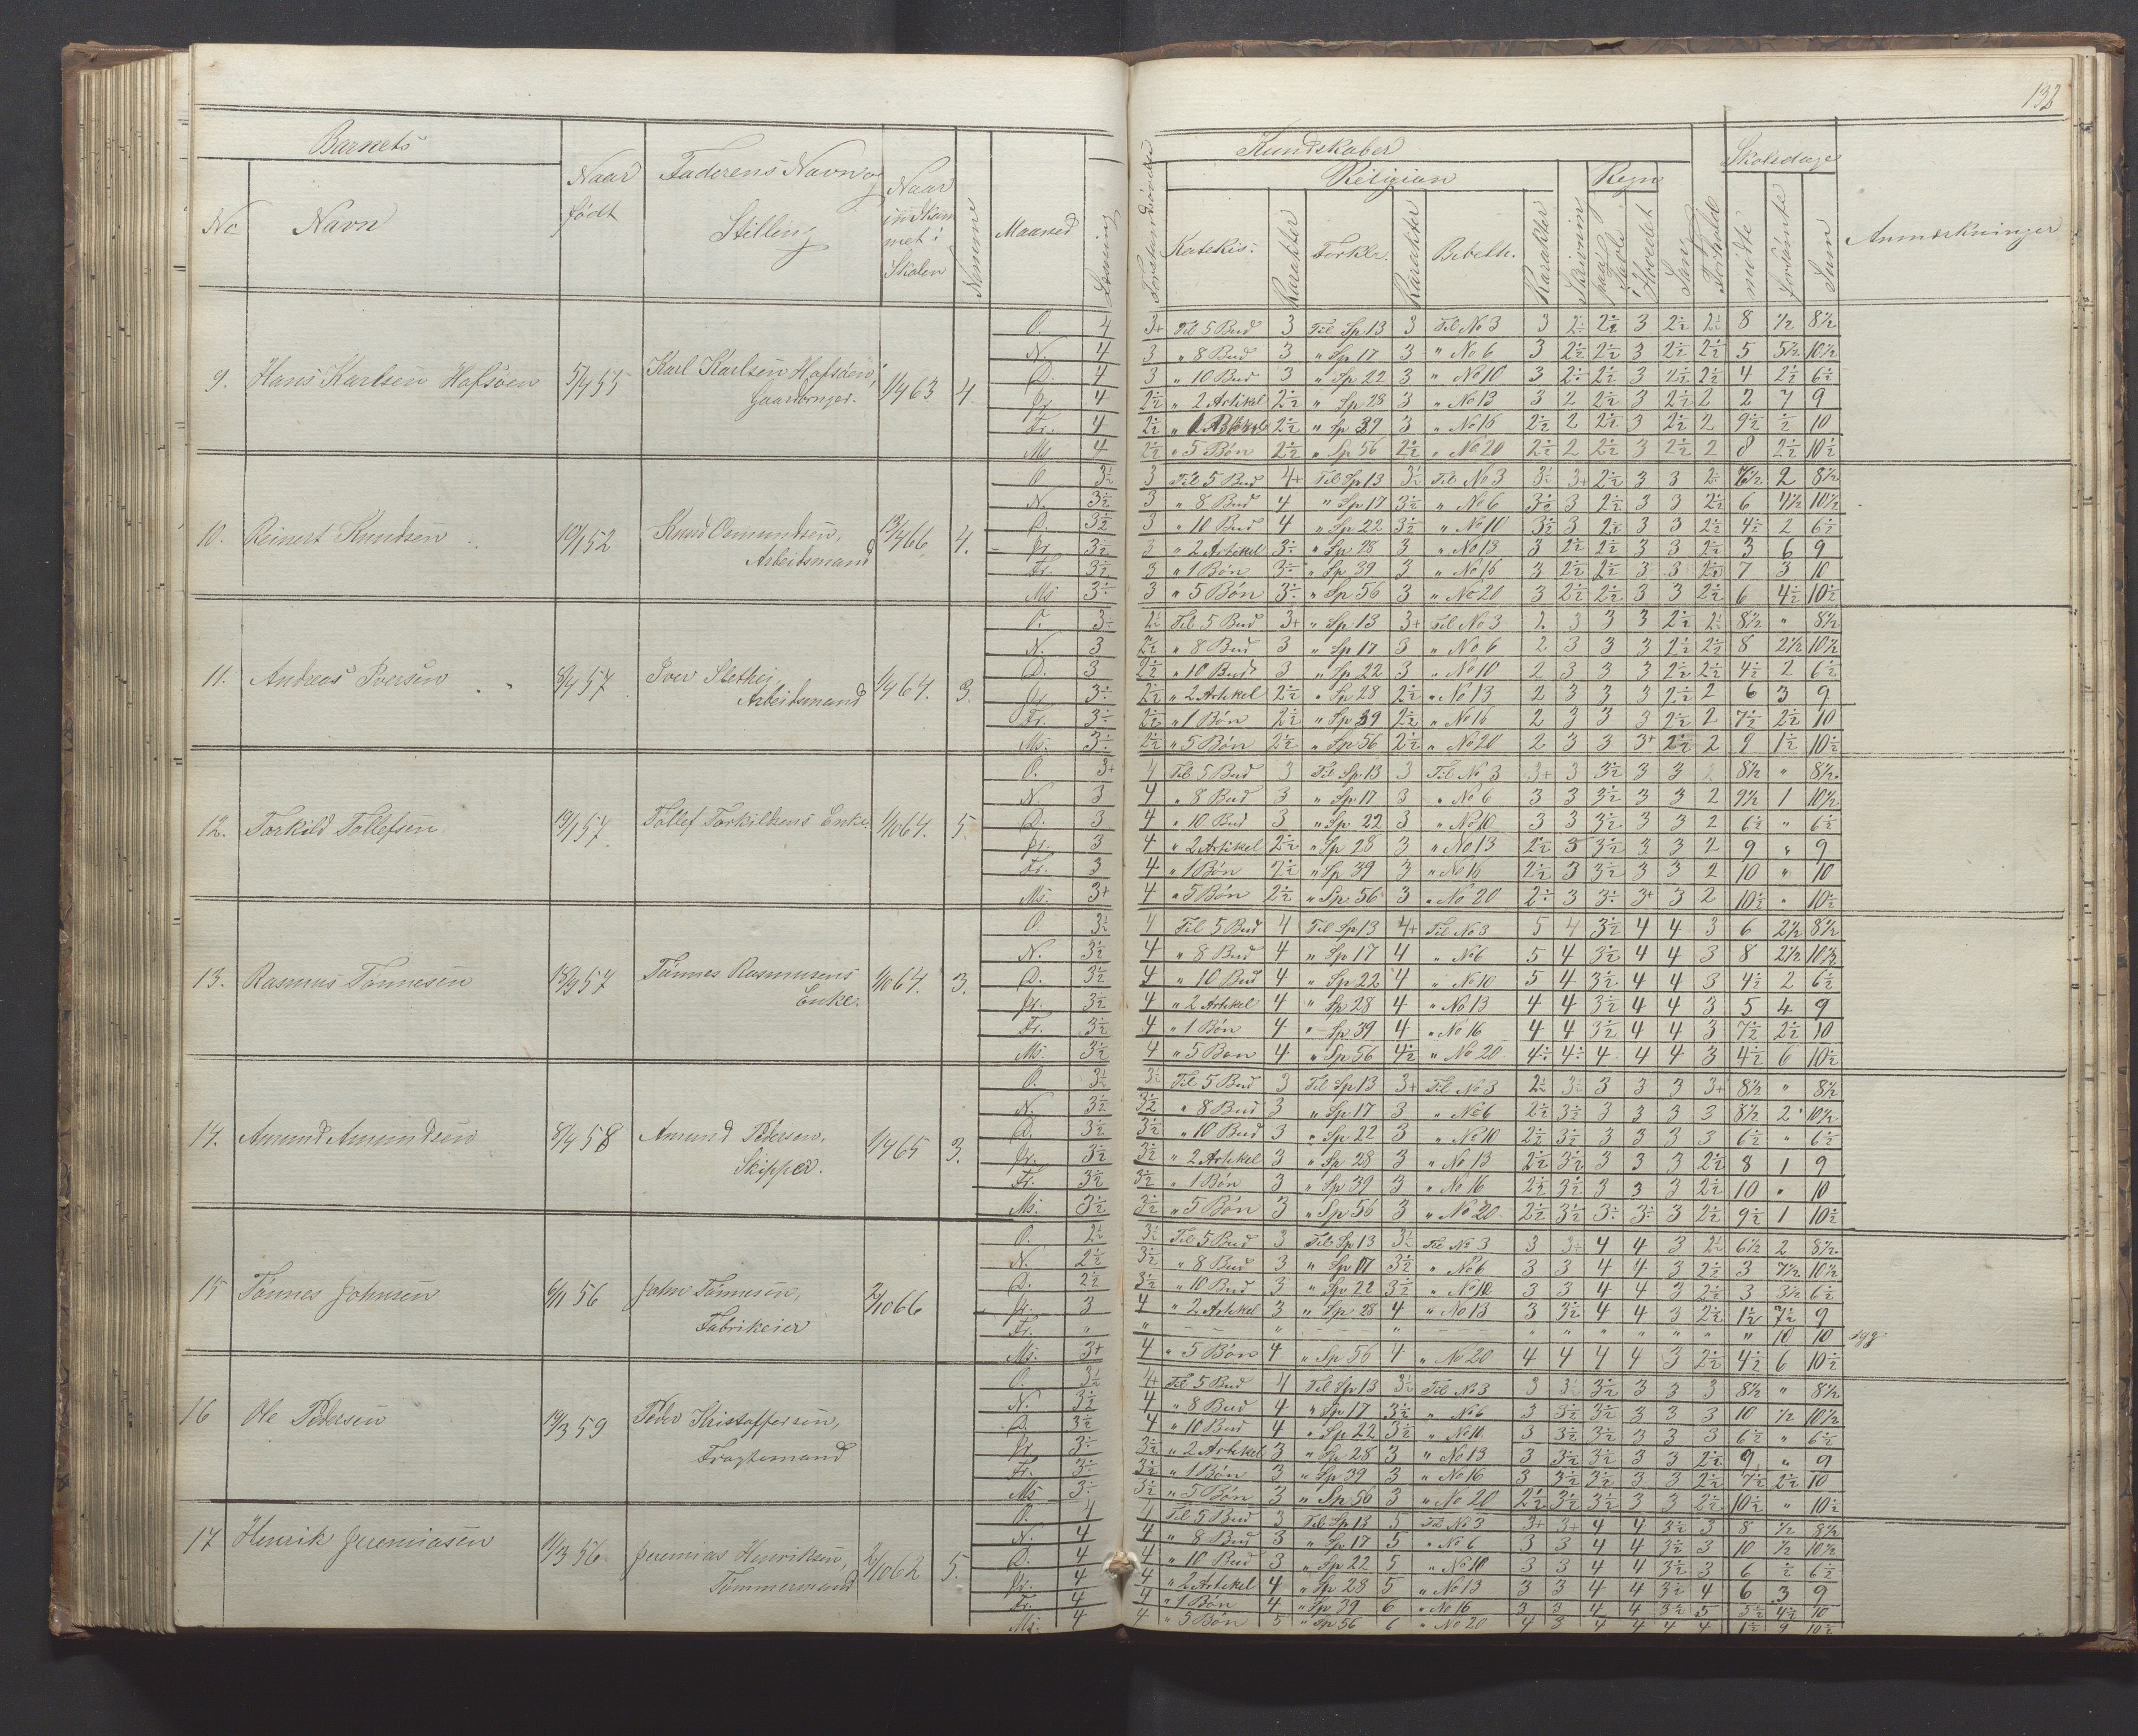 132
Barnets
Naar født
Faderens Navn og Stilling
Naar indkommet i Skolen
Nemme
Maaned
Læsning
Forstandsøvelse
Kundskaber
Religion
Regn
Skoledage
No
Navn
Katekis:
Karakter
Forklr.
Karakter
Bibelh.
Karakter
Skrivnin
paa Tavle
i Hovedet
Sang
Forhold
mødte
forsømte
Sum
Anmærkninger
9. Hans Karlsen Hafsøen 5/4 55 Karl Karlsen Hafsøen, Gaardbruger. 1/4 63 4.
O. 4 3+ Til 5 Bud 3 Til Sp 13 3 Til No 3 3 2÷ 2½ 3 2½ 2½ 8 ½ 8½
N. 4 3 " 8 Bud 3 " Sp 17 3 " No 6 3 2½ 2½ 3 2½ 2½ 5 5½ 10½
D. 4 3 " 10 Bud 3 " Sp 22 3 " No 10 3 2÷ 2½ 3 2½ 2½ 4 2½ 6½
Jr. 4 2½ " 2 Artikel 2½ " Sp 28 3 " No 13 3 2 2½ 3 2½ 2 2 7 9
Fr. 4 2½ 2½ " Sp 39 3 " No 16 2½ 2 2½ 3 2½ 2 9½ ½ 10
Ms 4 2½ " 5 Bøn 2½ " Sp 56 2½ " No 20 2½ 2 2½ 3 2½ 2 8 2½ 10½
10. Reinert Knudsen 10/1 52 Knud Osmundsen, Arbeidsmand 4.
O 3½ 3 Til 5 Bud 4+ Til Sp 13 3½ Til No 3 3½ 3+ 2½ 3 3 2 8½
N. 3½ 3 " 8 Bud 4 " Sp 17 3½ " No 6 3½ 3 2½ 3 3 2½ 6 4½ 10½
D. 3½ 3 " 10 Bud 4 " Sp 22 3½ " No 10 3½ 3 2½ 3 3 2½ 4½ 2 6½
Jr 3½ 3 " 2 Artikel 3÷ " Sp 28 3 " No 13 3 2½ 2½ 3 3 2½ 3 6 9
Fr. 3½ 3 " 1 Bøn 3÷ " Sp 39 3 " No 16 3 2½ 2½ 3 3 2½ 7 3 10
Ms 3÷ 3 " 5 Bøn 3÷ " Sp 56 3 " No 20 3 2½ 2½ 3 3 2½ 6 4½ 10½
11. Andreas Iversen 8/4 57 Iver Arbeidsmand 1/4 64. 3.
O. 3÷ 2½ Til 5 Bud 3+ " Sp 13 3+ Til No 3 2. 3 3 3 2½ 2½ 8½ " 8½
N. 3 2½ " 8 Bud 3 " Sp 17 3 " No 6 2 3 3 3 2½ 2½ 8 2½ 10½
D. 3 2½ " 10 Bud 3 " Sp 22 3 " No 10 2 3 3 3 2½ 2½ 4½ 2 6½
Jr 3÷ 2½ " 2 Artikel 2½ " Sp 28 2½ " No 13 2 3 3 3 2½ 2 6 3 9
Fr. 3÷ 2½ " 1 Bøn 2½ " Sp 39 2½ " No 16 2 3 3 3 2½ 2 7½ 2½ 10
Ms. 3÷ 2½ " 5 Bøn 2½ " Sp 56 2½ " No 20 2 3 3 3+ 2½ 2 9 1½ 10½
12. Torkild Tollefsen 19/1 57 Tollef Torkildsens Enke 1/10 64. 5.
O. 3+ 4 Til 5 Bud 3 Til Sp 13 3 Til No 3 3+ 3 3½ 3 3 2 8½ " 8½
N. 3 4 " 8 Bud 3 " Sp 17 3 " No 6 3 3 3½ 3 3 2 9½ 1 10½
D. 3 4 " 10 Bud 3 " Sp 22 3 " No 10 3 3 3½ 3 3 2 6½ " 6½
Jr. 3 4 " 2 Artikel 2½ " Sp 28 3 " No 13 2½ 3 3½ 3 3 2 9 " 9
Fr. 3 4 " 1 Bøn 2½ " Sp 39 3 " No 16 2½ 3 3½ 3 3 2 10 " 10
Ms. 3+ 4 " 5 Bøn 2½ " Sp 56 3 " No 20 2÷ 3 3÷ 3+ 3 2 10½ " 10½
13. Rasmus Tønnesen 18/9 57 Tønnes Rasmusens Enke. 1/10 64. 3.
O. 3½ 4 Til 5 Bud 4 Til Sp 13 4+ Til No 3 5 4 3½ 4 4 3 6 2½ 8½
N. 3½ 4 " 8 Bud 4 " Sp 17 4 " No 6 5 4 3½ 4 4 3 8 2½ 10½
D. 3½ 4 " 10 Bud 4 " Sp 22 4 " No 10 5 4 3½ 4 4 3 4½ 2 6½
Jr. 3½ 4 " 2 Artikel 4 " Sp 28 4 " No 13 4 4 3½ 4 4 3 5 4 9
Fr. 3½ 4 " 1 Bøn 4 " Sp 39 4 " No 16 4 4 3½ 4 4 3 7½ 2½ 10
Ms. 3½ 4 " 5 Bøn 4 " Sp 56 4½ " No 20 4÷ 4÷ 4 4 4 3 4½ 6 10½
14. Amund Amundsen 8/4 58 Amund Pedersen, Skipper. 1/4 65 3.
O. 3½ 3½ Til 5 Bud 3 Til Sp 13 3+ Til No 3 2½ 3½ 3 3 3 3+ 8½ " 8½
N. 3½ 3½ " 8 Bud 3 " Sp 17 3 " No 6 2½ 3½ 3 3 3 3 8½ 2 10½
D. 3½ 3½ " 10 Bud 3 " Sp 22 3 " No 10 2½ 3½ 3 3 3 3 6½ " 6½
Jr. 3½ 3½ " 2 Artikel 3 " Sp 28 3 " No 13 2½ 3½ 3 3 3 2½ 8 1 9
Fr. 3½ 3½ " 1 Bøn 3 " Sp 39 3 " No 16 2½ 3½ 3 3 3 2½ 10 " 10
Ms. 3½ 3½ " 5 Bøn 3 " Sp 56 3 " No 20 2½ 3½ 3÷ 3÷ 3 2½ 9½ 1 10½
15 Tønnes Johnsen 6/1 56 John Tønnesen, Fabrikeier 2/10 66
O. 2½ 3½ Til 5 Bud 3 Til Sp 13 3½ Til No 3 3 3÷ 4 4 3 2½ 6½ 2 8½
N. 2½ 3½ " 8 Bud 3 " Sp 17 3½ " No 6 3 3 4 4 3 2½ 3 7½ 10½
D. 2½ 3½ " 10 Bud 3 " Sp 22 3½ " No 10 3 3 4 4 3 2½ 3 3½ 6½
Jr. 3 4 " 2 Artikel 3 " Sp 28 4 " No 13 3 3½ 4 4 3 2½ 1½ 7½ 9
Fr. " " " " " " " " " " " 10 10 syg.
Ms. 3+ 4 " 5 Bøn 4 " Sp 56 4 " No 20 4 4 4 4 3 2½ 4½ 6 10½
16 Ole Pedersen 19/3 59 Peder Kristoffersen, Fragtemand
O. 3½ 4+ Til 5 Bud 4 Til Sp 13 3½ Til No 3 3 3½ 3½ 3 3 3 8½ " 8½
N. 3½ 4 " 8 Bud 4 " Sp 17 3½ " No 6 3 3½ 3½ 3 3 3 10 ½ 10½
D. 3½ 4 " 10 Bud 4 " Sp 22 3½ " No 10 3 3½ 3½ 3 3 3 6½ " 6½
Jr. 3÷ 3½ " 2 Artikel 3 " Sp 28 3 " No 13 3 3½ 3½ 3 3 2½ 9 " 9
Fr. 3÷ 3½ " 1 Bøn 3 " Sp 39 3 " No 16 3 3½ 3½ 3 3 2½ 7½ 2½ 10
Ms 3÷ 3½ " 5 Bøn 3 " Sp 56 3 " No 20 2½ 3½ 3½ 3 3 2½ 10½ " 10½
17 Henrik Jeremiasen 11/3 56 Jeremias Henriksen, Tømmermand 2/10 62 5.
O. 4 4 Til 5 Bud 3 Til Sp 13 5 Til No 3 3+ 3+ 4 4 3½ 3 8 ½ 8½
N. 4 4 " 8 Bud 3 " Sp 17 5 " No 6 3 3 4 4 3½ 3 10 ½ 10½
D. 4 4 " 10 Bud 3 " Sp 22 5 " No 10 3 3 4 4 3½ 3 6 ½ 6½
Jr. 4 4 " 2 Artikel 4 " Sp 28 5 " No 13 3 3 4 4 3½ 4 6 3 9
Fr. 4 4 " 1 Bøn 4 " Sp 39 6 " No 16 3 3 4 4 3½ 5 5½ 4½ 10
Ms. 4 4 " 5 Bøn 5 " Sp 56 6 " No 20 4 3 4 4 4 4 1½ 9 10½